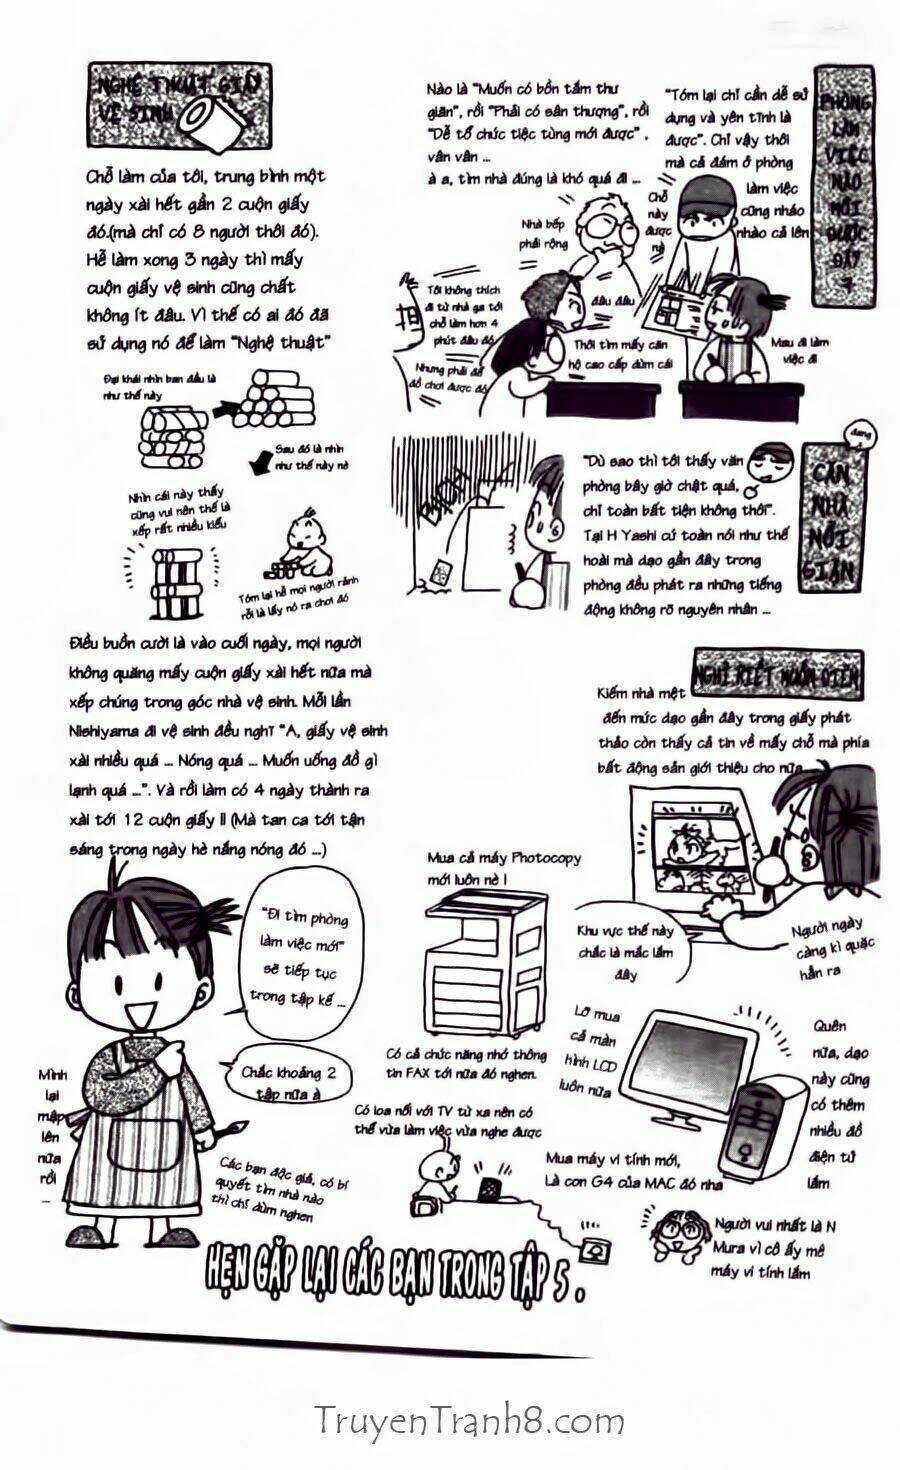 PHÒNG
LÀM
VIỆC
NÀO
MỚI
ĐƯỢC
ĐÂY
?
"Tóm lại chỉ cần dễ sử
dụng và yên tĩnh là
được". Chỉ vậy thôi
mà cả đám ở phòng
làm việc
cũng nháo
nhào cả lên
Nào là "Muốn có bồn tắm thư
giãn", rồi "Phải có sân thượng", rồi
"Dễ tổ chức tiệc tùng mới được" ,
vân vân ...
à a, tìm nhà đúng là khó quá đi ...
Chỗ
này
được
nè
Nhà bếp
phải rộng
đâu đâu
Tôi không thích
đi từ nhà ga tới
chỗ làm hơn 4
phút đâu đó
Nhưng phải để
đồ chơi được đó
Thôi tìm mấy căn
hộ cao cấp dùm cái
Mau đi làm
việc đi
đang
CĂN
NHÀ
NỔI
GIẬN
"Dù sao thì tôi thấy văn
phòng bây giờ chật quá,
chỉ toàn bất tiện không thôi".
Tại H Yashi cứ toàn nói như thế
hoài mà dạo gần đây trong
phòng đều phát ra những tiếng
động không rõ nguyên nhân ...
NGHĨ RIẾT MUỐN ĐIÊN
Kiếm nhà mệt
đến mức dạo gần đây trong giấy phát
thảo còn thấy cả tin về mấy chỗ mà phía
bất động sản giới thiệu cho nữa
Khu vực thế này
chắc là mắc lắm
đây
Người ngày
càng kì quặc
hẳn ra
NGHỆ THUẬT GIẤY
VỆ SINH
Chỗ làm của tôi, trung bình một
ngày xài hết gần 2 cuộn giấy
đó.(mà chỉ có 8 người thôi đó).
Hễ làm xong 3 ngày thì mấy
cuộn giấy vệ sinh cũng chất
không ít đâu. Vì thế có ai đó đã
sử dụng nó để làm "Nghệ thuật"
Đại khái nhìn ban đầu là
như thế này
Sau đó là nhìn
như thế này nè
Nhìn cái này thấy
cũng vui nên thế là
xếp rất nhiều kiểu
Tóm lại hễ mọi người rảnh
rỗi là lấy nó ra chơi đó
Điều buồn cười là vào cuối ngày, mọi người
không quăng mấy cuộn giấy xài hết nữa mà
xếp chúng trong góc nhà vệ sinh. Mỗi lần
Nishiyama đi vệ sinh đều nghĩ "A, giấy vệ sinh
xài nhiều quá ... Nóng quá ... Muốn uống đồ gì
lạnh quá ...". Và rồi làm có 4 ngày thành ra
xài tới 12 cuộn giấy !! (Mà tan ca tới tận
sáng trong ngày hè nắng nóng đó ...)
"Đi tìm phòng
làm việc mới"
sẽ tiếp tục
trong tập kế ...
Chắc khoảng 2
tập nữa à
Mình
lại
mập
lên
nữa
rồi
...
Các bạn độc giả, có bí
quyết tìm nhà nào
thì chỉ dùm nghen
Mua cả máy Photocopy
mới luôn nè !
Có cả chức năng nhớ thông
tin FAX tới nữa đó nghen.
Lỡ mua
cả màn
hình LCD
luôn nữa
Quên
nữa, dạo
này cũng
có thêm
nhiều đồ
điện tử
lắm
Có loa nối với TV từ xa nên có
thể vừa làm việc vừa nghe được
Mua máy vi tính mới,
Là con G4 của MAC đó nha
Người vui nhất là N
Mura vì cô ấy mê
máy vi tính lắm
HẸN GẶP LẠI CÁC BẠN TRONG TẬP 5 .
TruyenTranh8.com